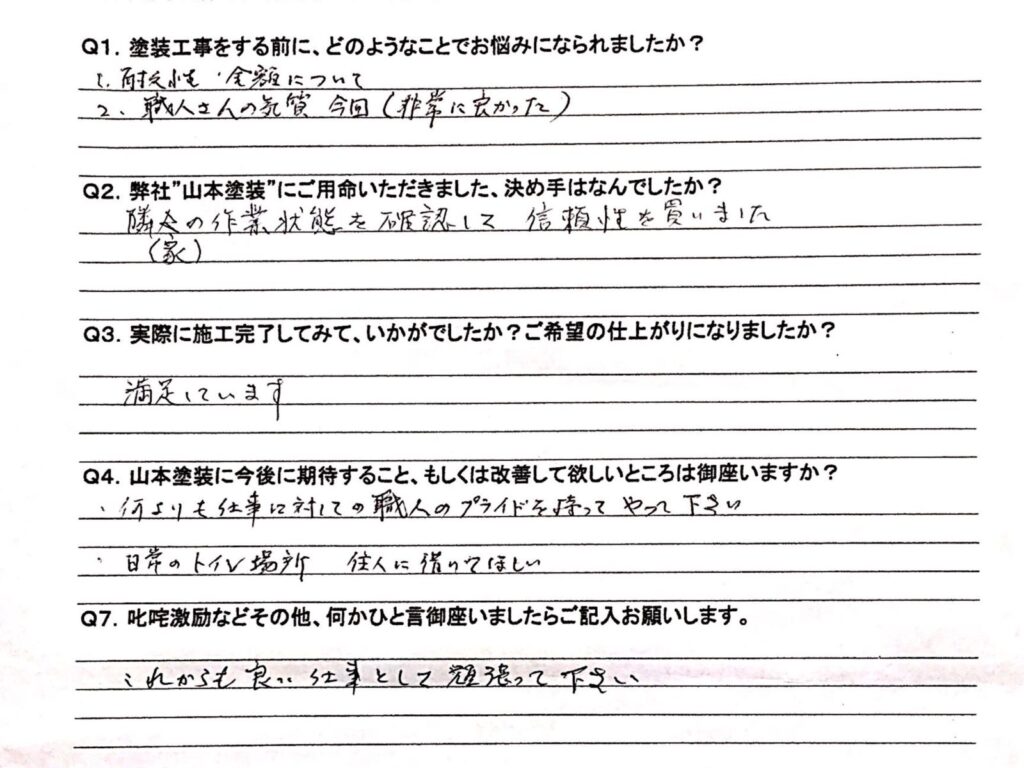 Q1. 塗装工事をする前に、どのようなことでお悩みになられましたか？
1. 耐久性・金額について
2、職人さんの気質 今回（非常に良かった）
Q2. 弊社”山本塗装”にご用命いただきました、決め手はなんでしたか？
の作業状態を確認して 信頼性を買いました
（家）
Q3. 実際に施工完了してみて、いかがでしたか？ご希望の仕上がりになりましたか？
満足しています
Q4. 山本塗装に今後に期待すること、もしくは改善して欲しいところは御座いますか？
・何よりも仕事に対しての職人のプライドを持って やって下さい
・日常のトイレ場所 住人に借りてほしい
Q7. 叱咤激励などその他、何かひと言御座いましたらご記入お願いします。
これからも良い仕事として頑張って下さい